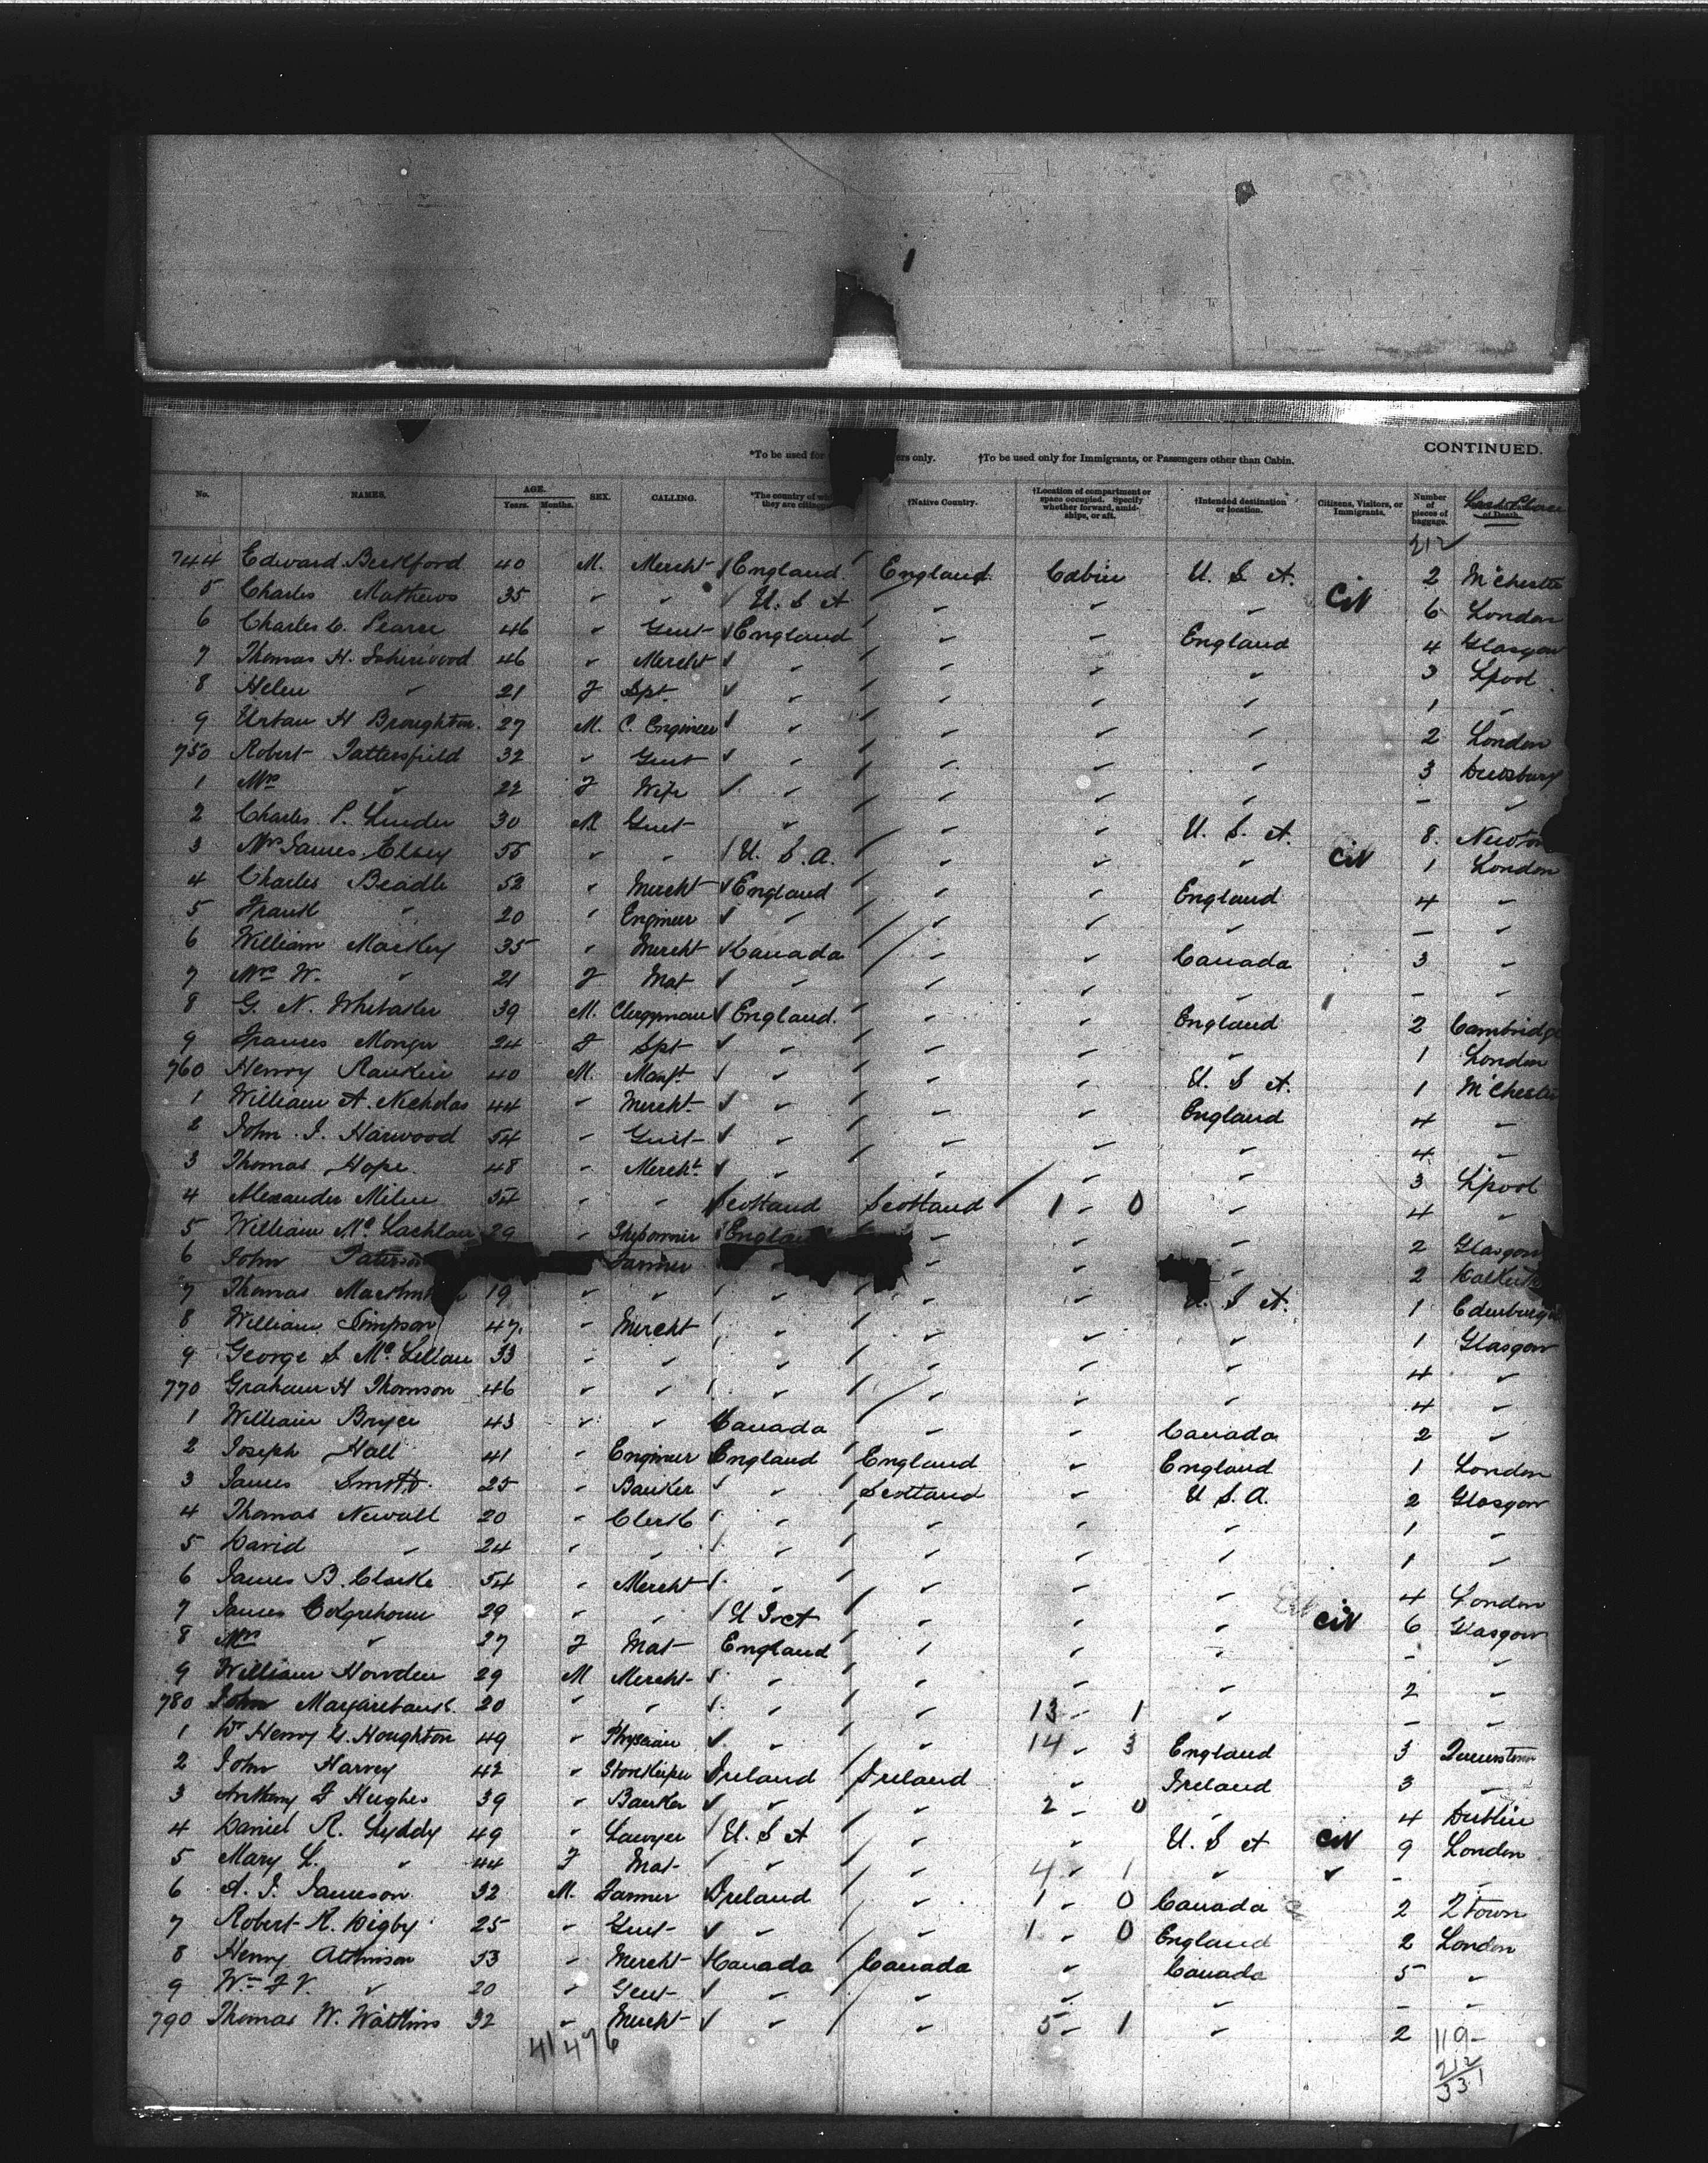 CONTINUED.
*To be used for ers only. †To be used only for Immigrants, or Passengers other than Cabin.
No. NAMES. AGE. Years. Months. SEX. CALLING. *The country of wh they are citizen †Native Country. †Location of compartment or space occupied. Specify whether forward, amidships, or aft. †Intended destination or location. Citizens, Visitors, or Immigrants. Number of pieces of baggage. of Death.
212
744 Edward 40 M. Mercht England England Cabin U. S. A. 2 M'chester
5 Charles Mathews 35 " " U. S. A " " " Cit 6 London
6 Charles C. Pearce 46 " Gent England " " England 4 Glasgow
7 Thomas H. 46 " Mercht " " " " 3 Lpool
8 Helen " 21 F Spt " " " " 1 "
9 Urban H Broughton. 27 M. C. Engineer " " " " 2 London
750 Robert Tattersfield 32 " Gent " " " " 3 Dewsbury
1 Mrs " 22 F Wife " " " " - "
2 Charles P. 30 M Gent " " " U. S. A. 8
3 Mr James 55 " " U. S. A. " " " Cit 1 London
4 Charles Beadle 52 " Mercht England " " England 4 "
5 Frank " 20 " Engineer " " " " - "
6 William Mackey 35 " Mercht Canada " " Canada 3 "
7 Mrs W. " 21 F Mat " " " " - "
8 G. N. Whitaker 39 M. Clergyman England. " " England 2 Cambridge
9 Frances Monger 24 F Spt " " " " 1 London
760 Henry Rankin 40 M. Manft. " " " U. S. A. 1 M'chester
1 William A. Nicholas 44 " Mercht. " " " England 4 "
2 John J. Harwood 54 " Gent " " " " 4 "
3 Thomas Hope. 48 " Mercht. " " " " 3 L'pool
4 Alexander Milne " " Scotland Scotland 1 0 " 4 "
5 William McLachlan 29 " Shipowner " " " 2 Glasgow
6 John Paterson Farmer " " " 2
7 Thomas 19 " " " " " S A. 1
8 William Simpson 47. " Mercht " " " " 1 Glasgow
9 George S. McLellan 33 " " " " " " 4 "
770 Graham H Thomson 46 " " " " " " 4 "
1 William Bryce 43 " " Canada " " Canada 2 "
2 Joseph Hall 41 " Engineer England England " England 1 London
3 James Smith. 25 " Banker " Scotland " U. S. A. 2 Glasgow
4 Thomas Newall 20 " Clerk " " " " 1 "
5 David " 24 " " " " " " 1 "
6 James B. Clarke 54 " Mercht " " " " 4 London
7 James 29 " " U S A " " " Cit 6 Glasgow
8 Mrs " 27 F Mat England " " " - "
9 William Howden 29 M Mercht " " " " 2 "
780 John 20 " " " " 13 - 1 " - "
1 Dr Henry Houghton 49 " Physician " " 14 - 3 England 3 Queenstown
2 John Harvey 42 " Storekeeper Ireland Ireland " Ireland 3 "
3 Anthony F Hughes 39 " Banker " " 2 - 0 " 4 Dublin
4 Daniel R. Lyddy 49 " Lawyer U. S A " " U. S A Cit 9 London
5 Mary L. " 44 F Mat " " 4 - 1 " " - "
6 A. J. Jameson 32 M. Farmer Ireland " 1 - 0 Canada 2 2town
7 Robert R. Digby 25 " Gent " " 1 - 0 England 2 London
8 Henry Atkinson 53 " Mercht Canada Canada " Canada 5 "
9 Wm F V. " 20 " Gent " " " " - "
790 Thomas W. Watkins 32 " Mercht " " 5 - 1 " 2
41 47 6
119-
212
331